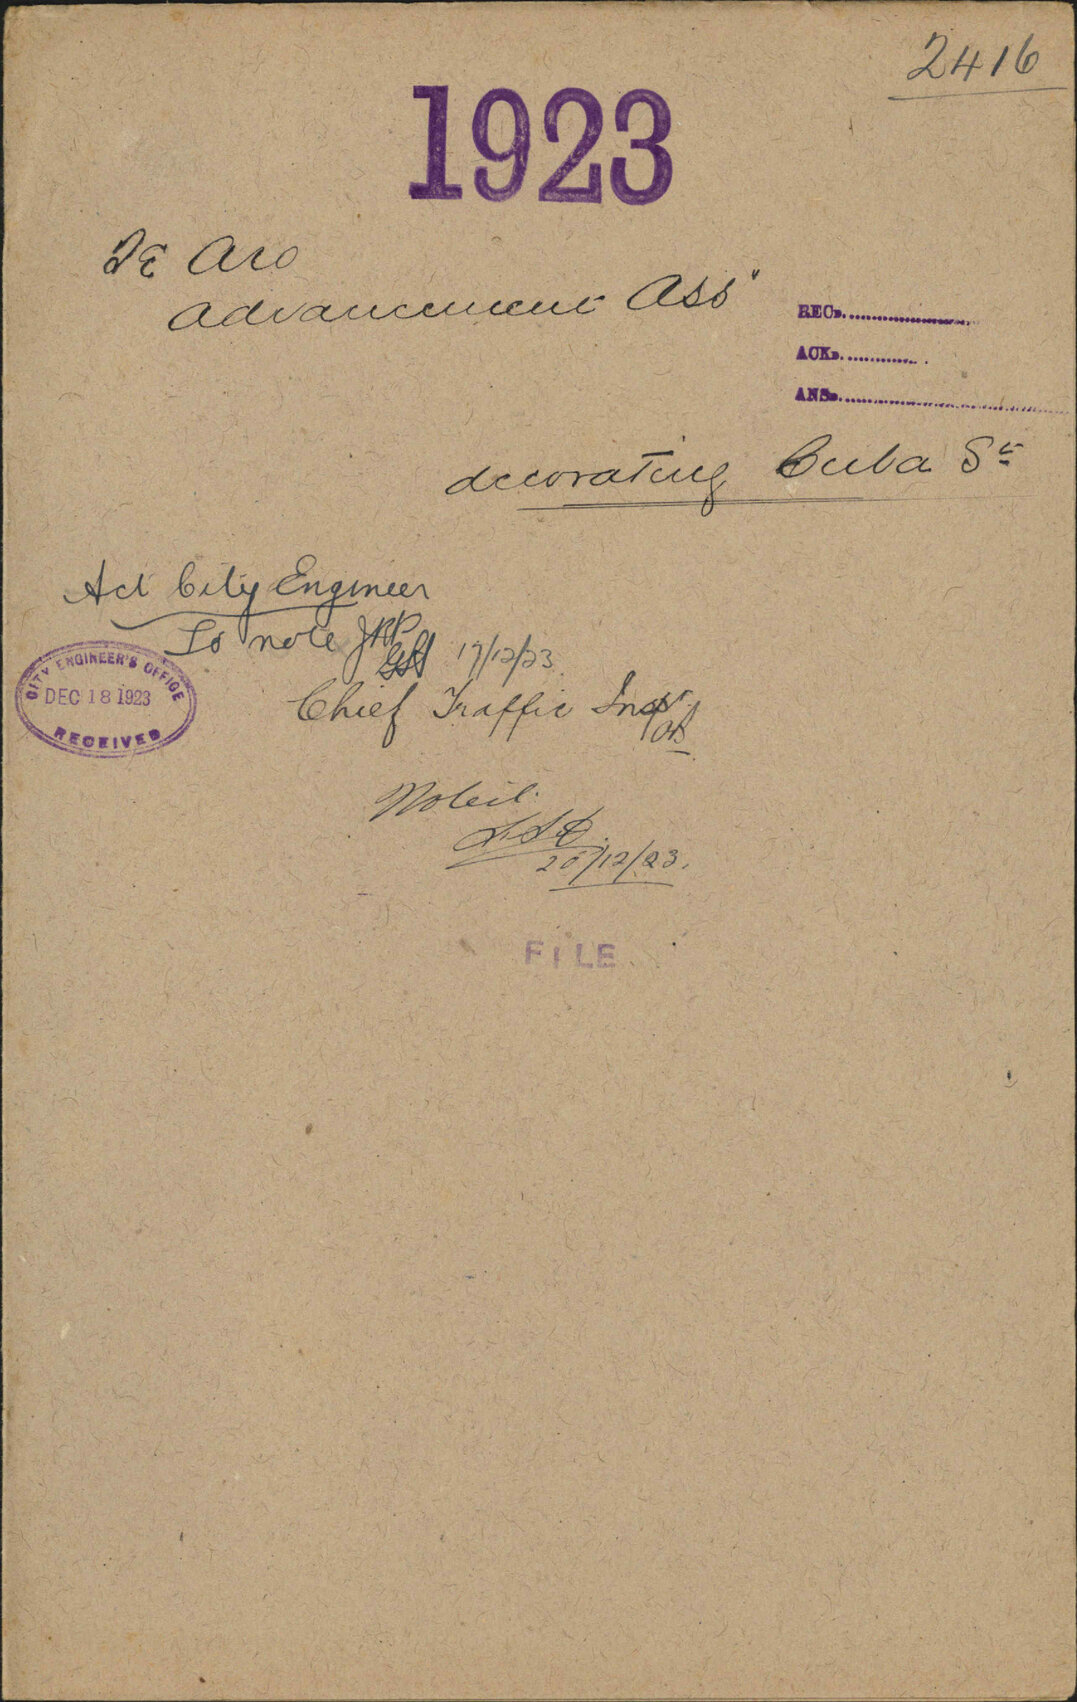 2416
1923
Te Aro
Advancement Ass"
REC D.
ACK D.
ANS D.
decorating Cuba St
Act City Engineer
To note
17/12/23
CITY ENGINEER'S OFFICE
DEC 18 1923
RECEIVED
Chief Traffic Inspr
Noted.
20/12/23.
FILE